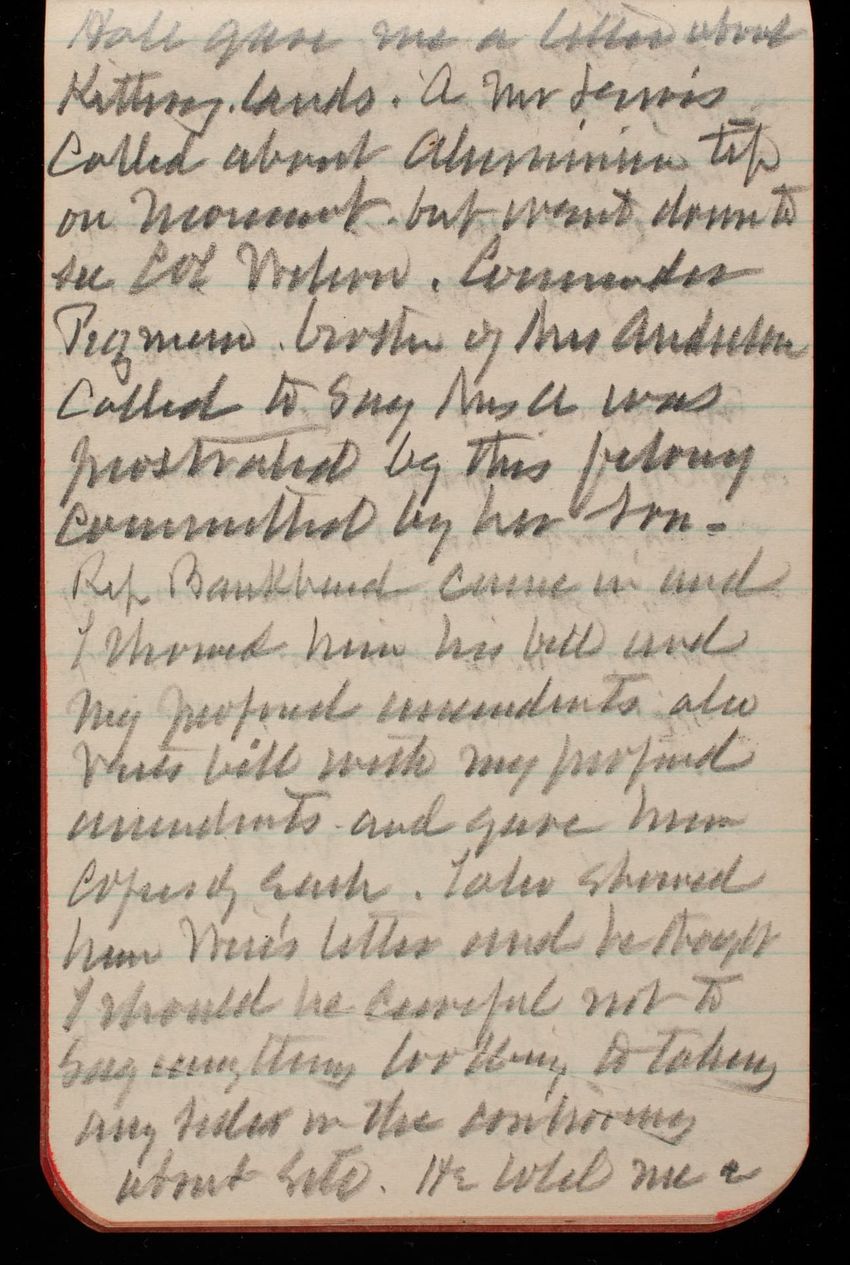 Hale gave me a letter about
lands. A Mr
Called about Aluminium tip
on Monument but went down to
see Col Wilson. Commander
brother of Mrs Anderson
Called to say Mrs A was
prostrated by this felony
committed by her son -
Rep Bankhead came in and
I showed him his bill and
my proposed amendments also
bill with my proposed
amendments and gave him
Copies of each. I also showed
him letter and he thought
I should be careful not to
Say anything looking to taking
any sides in the controversy
about Site. He told me a